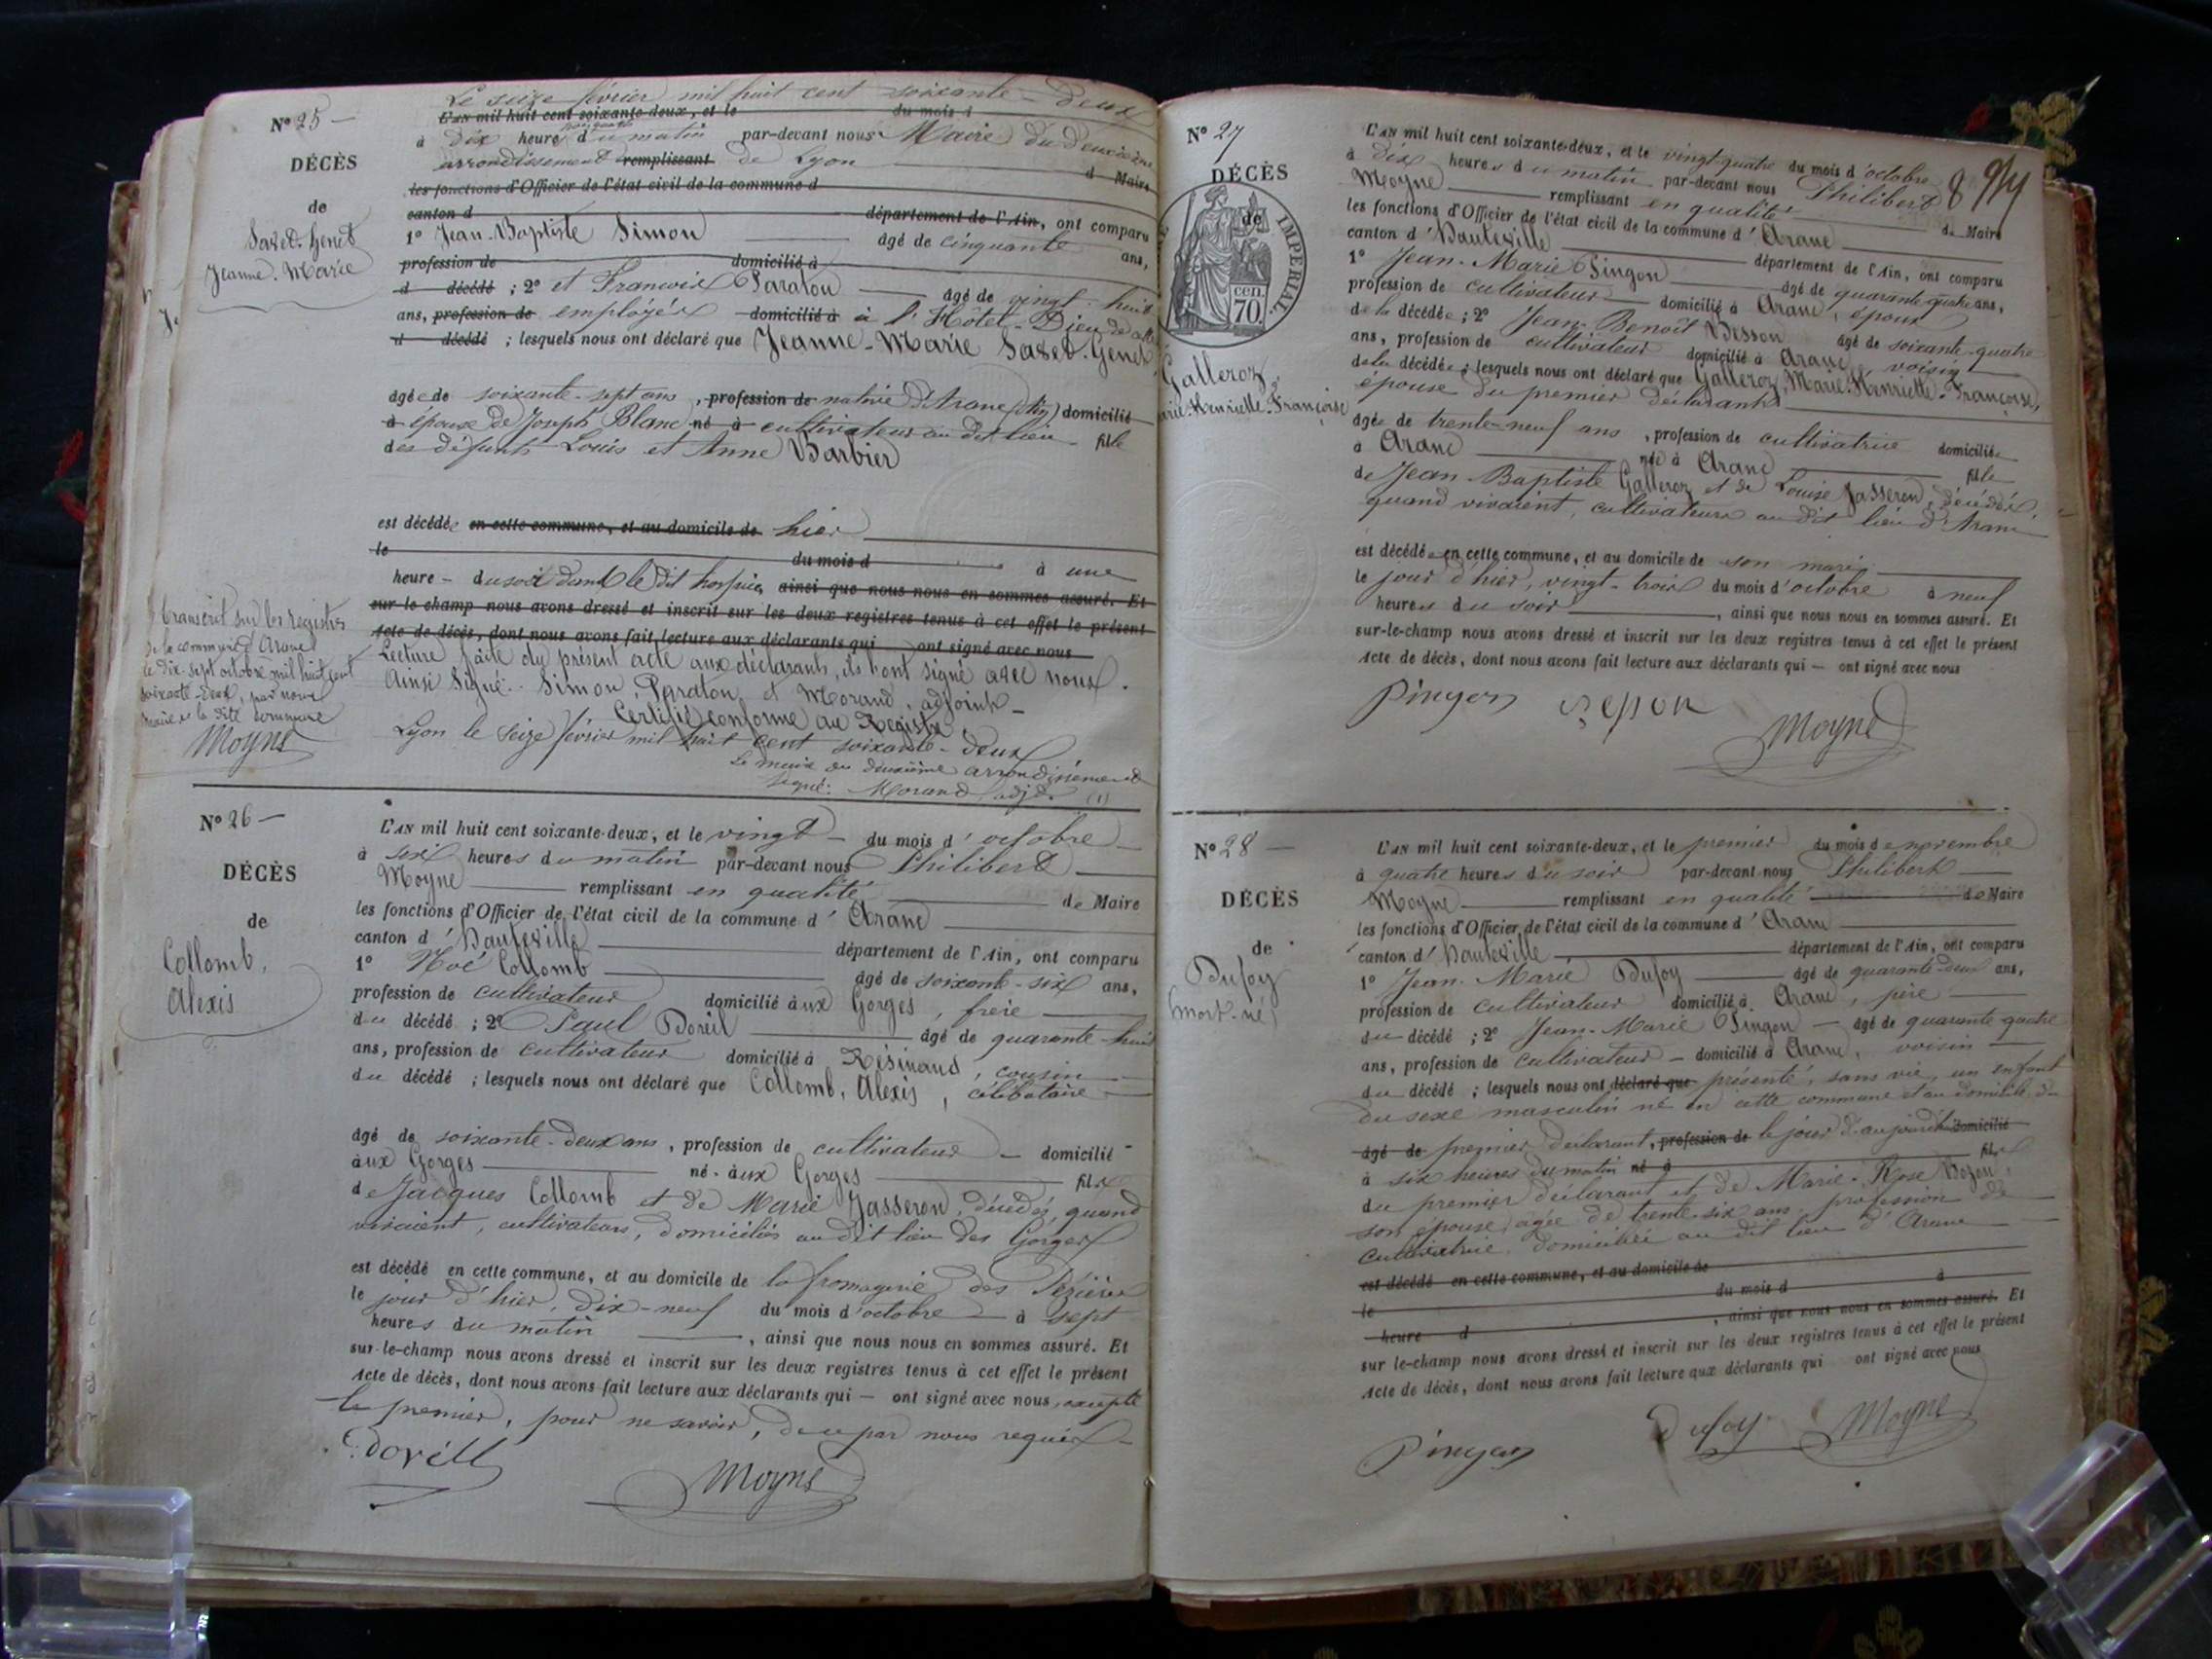 N° 25 —
DÉCÈS
de
Savet-Genet
Jeanne-Marie
Le seize février mil huit cent soixante-deux
L'AN mil huit cent soixante-deux, et le du mois d
à dix heure du matin par-devant nous Maire du deuxième
arrondissement remplissant de Lyon d Maire
les fonctions d'Officier de l'état civil de la commune d
canton d département de l'Ain, ont comparu
1° Jean-Baptiste Simon âgé de cinquante ans,
profession de domicilié à
d décédé ; 2° et François Paraton âgé de vingt-huit
ans, profession de employés domicilié à à l'Hôtel-Dieu de
d décédé ; lesquels nous ont déclaré que Jeanne-Marie Savet-Genet
âgée de soixante-sept ans, profession de native d'Aranc (Ain) domicilié
à épouse de Joseph Blanc né à cultivateur au dit lieu fille
des défunts Louis et Anne Barbier
est décédée en cette commune, et au domicile de hier
le du mois d à une
heure - du soir dans le dit hospice, ainsi que nous nous en sommes assuré. Et
sur-le-champ nous avons dressé et inscrit sur les deux registres tenus à cet effet le présent
Acte de décès, dont nous avons fait lecture aux déclarants qui ont signé avec nous
Lecture faite du présent acte aux déclarants, ils l'ont signé avec nous.
Ainsi Signé : Simon, Paraton et Morand, adjoint —
Certifié conforme au Registre
Lyon le seize février mil huit cent soixante-deux
Le maire du deuxième arrondissement
Signé : Morand, adjt. (1)
Transcrit sur les registres
de la commune d'Aranc
le dix-sept octobre mil huit cent
soixante-deux, par nous
maire de la dite commune
Moyne
N° 26 —
DÉCÈS
de
Collomb,
Alexis
L'AN mil huit cent soixante-deux, et le vingt du mois d'octobre
à six heures du matin par-devant nous Philibert
Moyne remplissant en qualité de Maire
les fonctions d'Officier de l'état civil de la commune d'Aranc
canton d'Hauteville département de l'Ain, ont comparu
1° Noé Collomb âgé de soixante-six ans,
profession de cultivateur domicilié àux Gorges, frère
du décédé ; 2° Paul Doril âgé de quarante-huit
ans, profession de cultivateur domicilié à Résinand, cousin
du décédé ; lesquels nous ont déclaré que Collomb, Alexis, célibataire
âgé de soixante-deux ans, profession de cultivateur domicilié
àux Gorges né àux Gorges fils
de Jacques Collomb et de Marie Jasseron, décédés, quand
vivaient, cultivateurs, domiciliés au dit lieu des Gorges
est décédé en cette commune, et au domicile de la fromagerie des Pézières
le jour d'hier, dix-neuf du mois d'octobre à sept
heures du matin, ainsi que nous nous en sommes assuré. Et
sur-le-champ nous avons dressé et inscrit sur les deux registres tenus à cet effet le présent
Acte de décès, dont nous avons fait lecture aux déclarants qui — ont signé avec nous, excepté
le premier, pour ne savoir, de ce par nous requis
Dorill
Moyne
8
N° 27
DÉCÈS
de
IMPERIAL.
cen.
70
Galleroz,
Marie-Henriette-Françoise
L'AN mil huit cent soixante-deux, et le vingt-quatre du mois d'octobre
à dix heures du matin par-devant nous Philibert
Moyne remplissant en qualité de Maire
les fonctions d'Officier de l'état civil de la commune d'Aranc
canton d'Hauteville département de l'Ain, ont comparu
1° Jean-Marie Pingon âgé de quarante-quatre ans,
profession de cultivateur domicilié à Aranc, époux
de la décédée ; 2° Jean-Benoît Besson âgé de soixante-quatre
ans, profession de cultivateur domicilié à Aranc, voisin
de la décédée ; lesquels nous ont déclaré que Galleroz, Marie-Henriette-Françoise,
épouse du premier déclarant
âgée de trente-neuf ans, profession de cultivatrice domiciliée
à Aranc née à Aranc fille
de Jean-Baptiste Galleroz et de Louise Jasseron, décédés,
quand vivaient, cultivateurs au dit lieu d'Aranc
est décédée en cette commune, et au domicile de son mari
le jour d'hier, vingt-trois du mois d'octobre à neuf
heures du soir, ainsi que nous nous en sommes assuré. Et
sur-le-champ nous avons dressé et inscrit sur les deux registres tenus à cet effet le présent
Acte de décès, dont nous avons fait lecture aux déclarants qui — ont signé avec nous
Pingon
Moyne
N° 28 —
DÉCÈS
de
Dufoy
mort-né
L'AN mil huit cent soixante-deux, et le premier du mois de novembre
à quatre heures du soir par-devant nous Philibert
Moyne remplissant en qualité de Maire
les fonctions d'Officier de l'état civil de la commune d'Aranc
canton d'Hauteville département de l'Ain, ont comparu
1° Jean-Marie Dufoy âgé de quarante-deux ans,
profession de cultivateur domicilié à Aranc, père
du décédé ; 2° Jean-Marie Pingon — âgé de quarante-quatre
ans, profession de cultivateur — domicilié à Aranc, voisin
du décédé ; lesquels nous ont déclaré que présenté, sans vie, un enfant
du sexe masculin né en cette commune et au domicile du
âgé de premier déclarant, profession de le jour d'aujourd'hui domicilié
à six heures du matin né à fils
du premier déclarant et de Marie-Rose Bozon,
son épouse, âgée de trente-six ans, profession de
cultivatrice, domiciliée au dit lieu d'Aranc
est décédé en cette commune, et au domicile de
le du mois d à
heure d, ainsi que nous nous en sommes assuré. Et
sur le-champ nous avons dressé et inscrit sur les deux registres tenus à cet effet le présent
Acte de décès, dont nous avons fait lecture aux déclarants qui ont signé avec nous
Pingon
Dufoy
Moyne